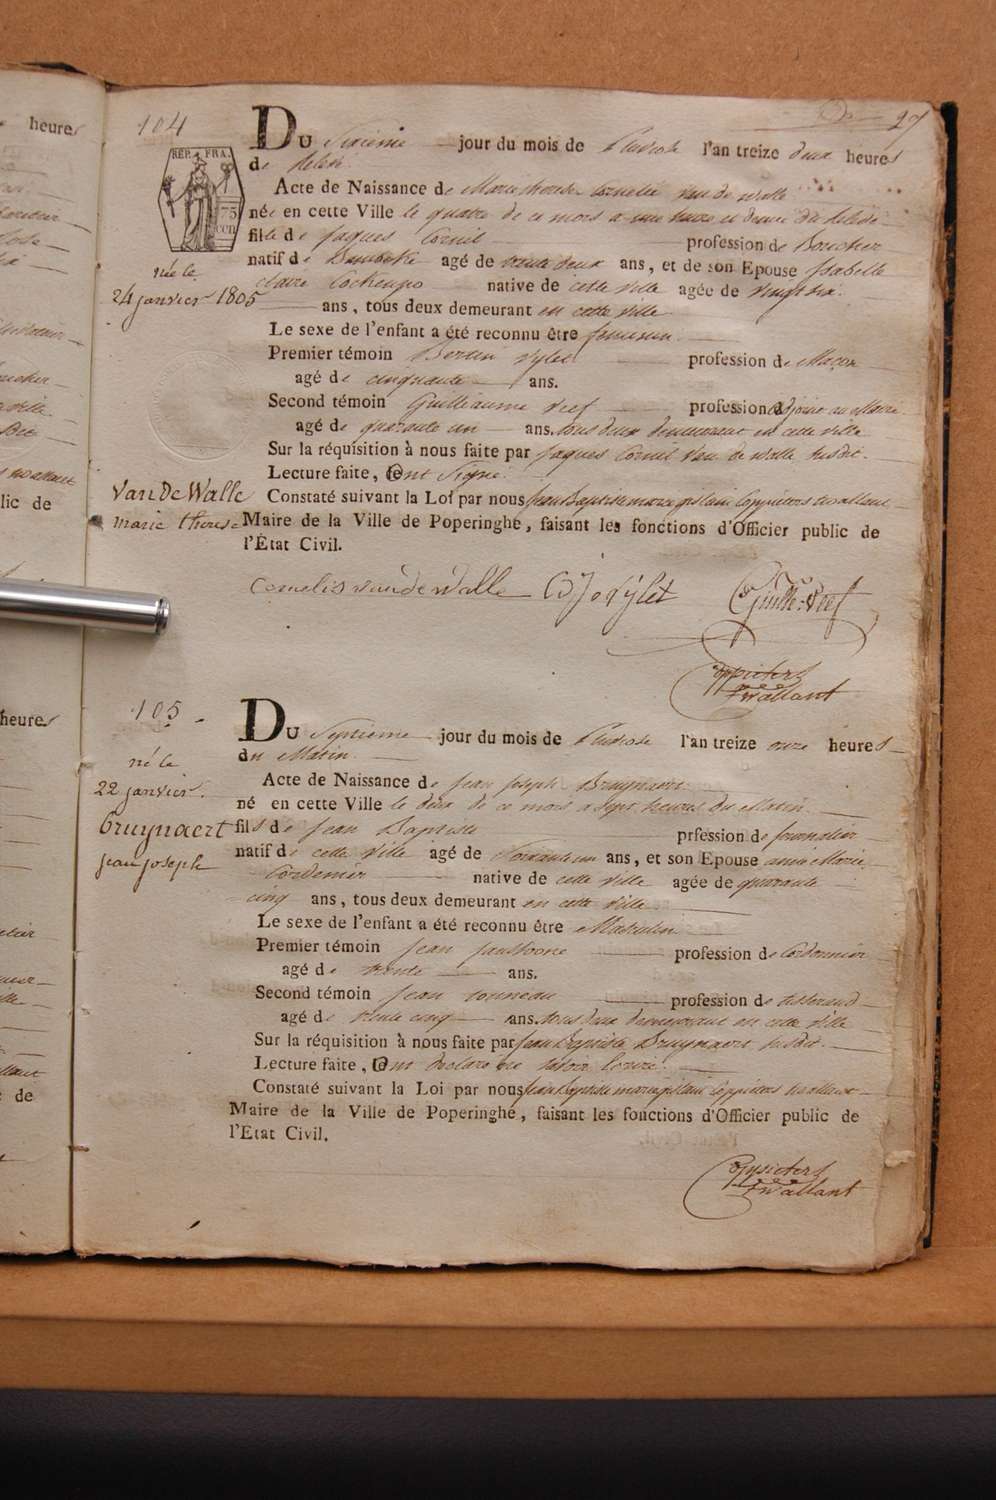 heures
lic de
heures
de
27
104
RÉP. FRA.
75
CEN
né le
24 janvier 1805
Van De Walle
marie therese
DU Sixieme jour du mois de Pluviose l'an treize deux heures
de Relevé
Acte de Naissance de Marie therese Cornelie Van de Walle
née en cette Ville le quatre de ce mois a une heure et demie du Relevée
fille de Jaques Cornil profession de Boucher
natif de Bambeke agé de trente deux ans, et de son Epouse Isabelle
Claire native de cette ville agée de vingt six
ans, tous deux demeurant en cette ville
Le sexe de l'enfant a été reconnu être feminin
Premier témoin Bertin Vylet profession de Maçon
agé de cinquante ans.
Second témoin Guilleaume Veef profession adjoint au Maire
agé de quarante un ans. tous deux demeurant en cette ville
Sur la réquisition à nous faite par Jaques Cornil Van de Walle susdit.
Lecture faite, ont Signé
Constaté suivant la Loi par nous Jean Baptiste marie gislain Coppieters wallant
Maire de la Ville de Poperinghe, faisant les fonctions d'Officier public de
l'État Civil.
Cornelis van de Walle
Guille: Veef
Coppieters
wallant
105
né le
22 janvier
bruynaert
jean joseph
DU Septieme jour du mois de Pluviose l'an treize onze heures
du Matin
Acte de Naissance de Jean Joseph Bruynaert
né en cette Ville le deux de ce mois a sept heures du Matin
fils de Jean Baptiste prfession de journalier
natif de cette Ville agé de Soixante un ans, et son Epouse anne Marie
Cordenier native de cette ville agée de quarante
cinq ans, tous deux demeurant en cette ville
Le sexe de l'enfant a été reconnu être Masculin
Premier témoin Jean profession de Cordonnier
agé de trente ans.
Second témoin Jean tonneau profession de tisserand
agé de trente cinq ans. tous deux demeurant en cette ville
Sur la réquisition à nous faite par Jean Baptiste Bruynaert susdit.
Lecture faite, ont declaré ne savoir
Constaté suivant la Loi par nous Jean Baptiste marie gislain Coppieters wallant
Maire de la Ville de Poperinghe, faisant les fonctions d'Officier public de
l'Etat Civil.
Coppieters
wallant